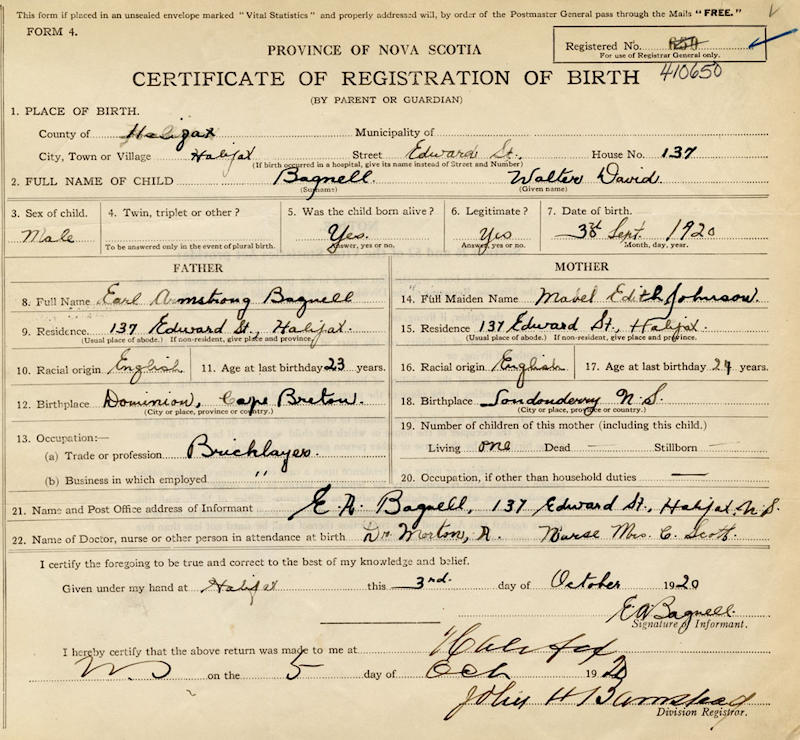 This form if placed in an unsealed envelope marked "Vital Statistics" and properly addressed will, by order of the Postmaster General pass through the Mails "FREE."
FORM 4.
Registered No.
For use of Registrar General only.
410650
PROVINCE OF NOVA SCOTIA
CERTIFICATE OF REGISTRATION OF BIRTH
(BY PARENT OR GUARDIAN)
1. PLACE OF BIRTH.
County of Halifax Municipality of
City, Town or Village Halifax Street Edward St. House No. 137
(If birth occurred in a hospital, give its name instead of Street and Number)
2. FULL NAME OF CHILD Bagnell. Walter David.
(Surname) (Given name)
3. Sex of child. 4. Twin, triplet or other? 5. Was the child born alive? 6. Legitimate? 7. Date of birth.
Male Yes. Yes Sept. 1920
To be answered only in the event of plural birth. Answer, yes or no. Answer, yes or no. Month, day, year.
FATHER MOTHER
8. Full Name Earl Armstrong Bagnell 14. Full Maiden Name Mabel Edith Johnson.
9. Residence. 137 Edward St., Halifax. 15. Residence. 137 Edward St., Halifax.
(Usual place of abode.) If non-resident, give place and province. (Usual place of abode.) If non-resident, give place and province.
10. Racial origin English 11. Age at last birthday 23 years. 16. Racial origin English 17. Age at last birthday years.
12. Birthplace Dominion, Cape Breton. 18. Birthplace Londonderry N.S.
(City or place, province or country.) (City or place, province or country.)
13. Occupation:— 19. Number of children of this mother (including this child.)
(a) Trade or profession Bricklayer. Living one Dead — Stillborn —
(b) Business in which employed " 20. Occupation, if other than household duties —
21. Name and Post Office address of Informant E. A. Bagnell, 137 Edward St., Halifax, N.S.
22. Name of Doctor, nurse or other person in attendance at birth Dr. Morton, A. Nurse Mrs. C. Scott.
I certify the foregoing to be true and correct to the best of my knowledge and belief.
Given under my hand at Halifax this 3rd. day of October 1920
E A Bagnell.
Signature of Informant.
I hereby certify that the above return was made to me at Halifax
N.S on the 5 day of Oct 1920
John H Barnstead
Division Registrar.